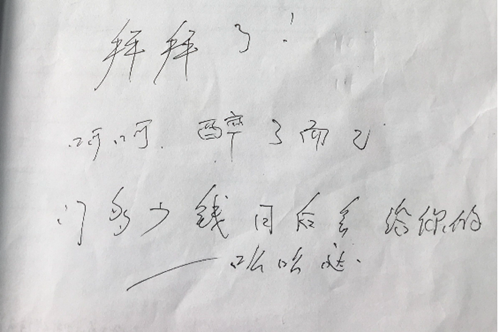 拜拜了!
呵呵.醉了而已
门多少钱日后会给你的
——哈哈哒.